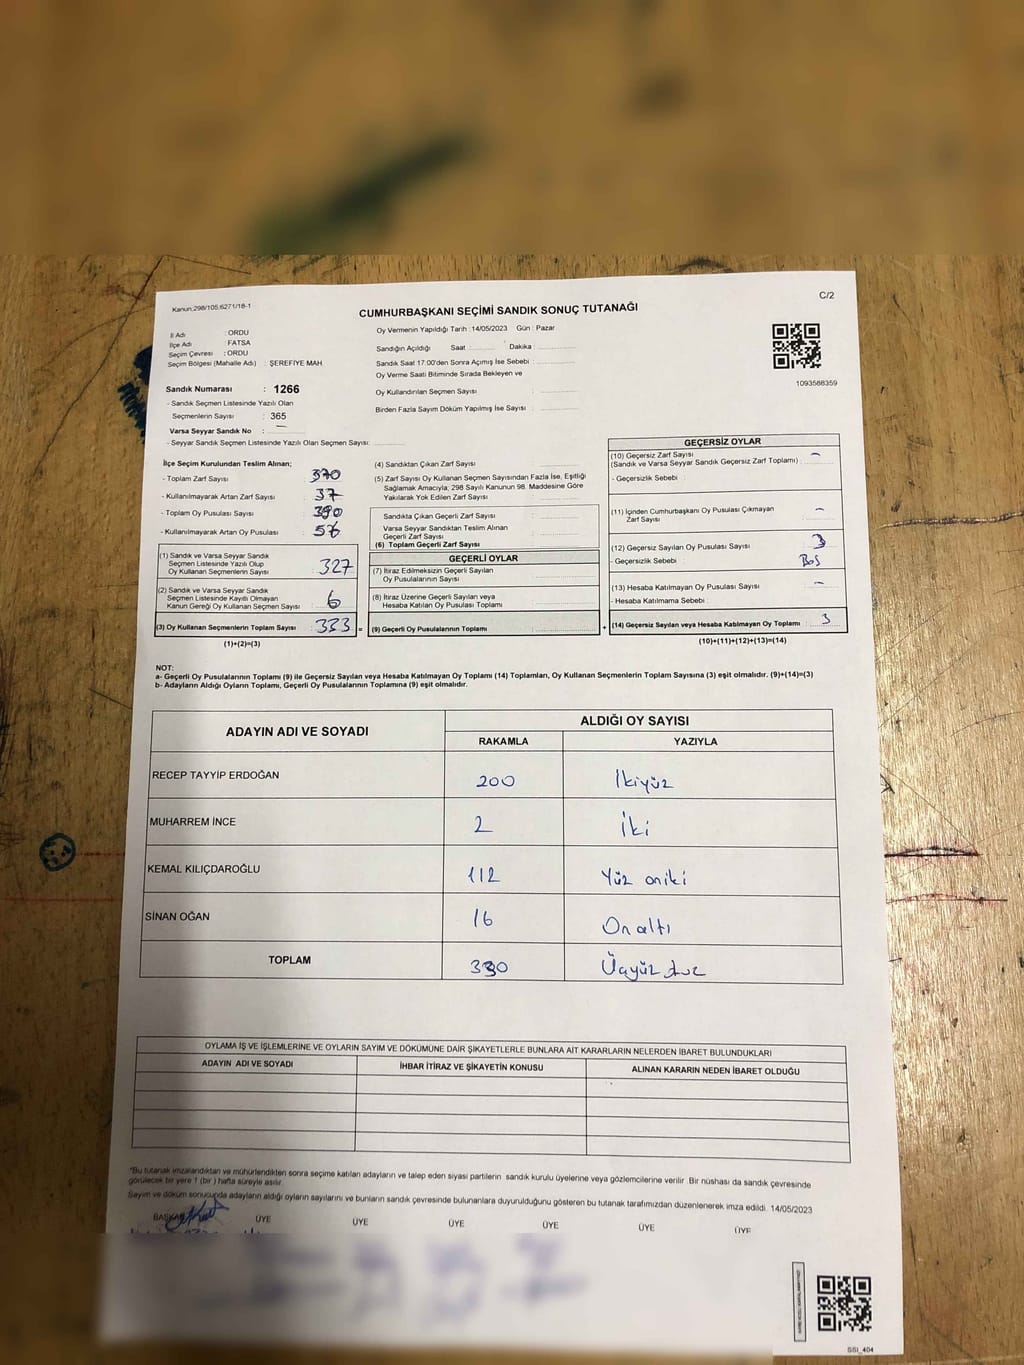 Kanun:298/105,6271/18-1
C/2
CUMHURBAŞKANI SEÇİMİ SANDIK SONUÇ TUTANAĞI
İl Adı : ORDU
İlçe Adı : FATSA
Seçim Çevresi : ORDU
Seçim Bölgesi (Mahalle Adı) : ŞEREFİYE MAH
Sandık Numarası : 1266
- Sandık Seçmen Listesinde Yazılı Olan
Seçmenlerin Sayısı : 365
Varsa Seyyar Sandık No : —
- Seyyar Sandık Seçmen Listesinde Yazılı Olan Seçmen Sayısı:
Oy Vermenin Yapıldığı Tarih :14/05/2023 Gün : Pazar
Sandığın Açıldığı Saat Dakika :
Sandık Saat 17.00'den Sonra Açımış İse Sebebi :
Oy Verme Saati Bitiminde Sırada Bekleyen ve
Oy Kullandırılan Seçmen Sayısı :
Birden Fazla Sayım Döküm Yapılmış İse Sayısı :
1093588359
İlçe Seçim Kurulundan Teslim Alınan;
- Toplam Zarf Sayısı : 370
- Kullanılmayarak Artan Zarf Sayısı : 37
- Toplam Oy Pusulası Sayısı : 390
- Kullanılmayarak Artan Oy Pusulası : 56
(1) Sandık ve Varsa Seyyar Sandık
Seçmen Listesinde Yazılı Olup
Oy Kullanan Seçmenlerin Sayısı : 327
(2) Sandık ve Varsa Seyyar Sandık
Seçmen Listesinde Kayıtlı Olmayan
Kanun Gereği Oy Kullanan Seçmen Sayısı : 6
(3) Oy Kullanan Seçmenlerin Toplam Sayısı : 333 =
(1)+(2)=(3)
(4) Sandıktan Çıkan Zarf Sayısı :
(5) Zarf Sayısı Oy Kullanan Seçmen Sayısından Fazla İse, Eşitliği
Sağlamak Amacıyla, 298 Sayılı Kanunun 98. Maddesine Göre
Yakılarak Yok Edilen Zarf Sayısı :
Sandıkta Çıkan Geçerli Zarf Sayısı :
Varsa Seyyar Sandıktan Teslim Alınan
Geçerli Zarf Sayısı :
(6) Toplam Geçerli Zarf Sayısı :
GEÇERLİ OYLAR
(7) İtiraz Edilmeksizin Geçerli Sayılan
Oy Pusulalarının Sayısı :
(8) İtiraz Üzerine Geçerli Sayılan veya
Hesaba Katılan Oy Pusulası Toplamı :
(9) Geçerli Oy Pusulalarının Toplamı : +
GEÇERSİZ OYLAR
(10) Geçersiz Zarf Sayısı
(Sandık ve Varsa Seyyar Sandık Geçersiz Zarf Toplamı) : –
- Geçersizlik Sebebi :
(11) İçinden Cumhurbaşkanı Oy Pusulası Çıkmayan
Zarf Sayısı : –
(12) Geçersiz Sayılan Oy Pusulası Sayısı : 3
- Geçersizlik Sebebi : Boş
(13) Hesaba Katılmayan Oy Pusulası Sayısı : –
- Hesaba Katılmama Sebebi :
(14) Geçersiz Sayılan veya Hesaba Katılmayan Oy Toplamı : 3
(10)+(11)+(12)+(13)=(14)
NOT:
a- Geçerli Oy Pusulalarının Toplamı (9) ile Geçersiz Sayılan veya Hesaba Katılmayan Oy Toplamı (14) Toplamları, Oy Kullanan Seçmenlerin Toplam Sayısına (3) eşit olmalıdır. (9)+(14)=(3)
b- Adayların Aldığı Oyların Toplamı, Geçerli Oy Pusulalarının Toplamına (9) eşit olmalıdır.
ADAYIN ADI VE SOYADI
ALDIĞI OY SAYISI
RAKAMLA YAZIYLA
RECEP TAYYİP ERDOĞAN 200 İkiyüz
MUHARREM İNCE 2 İki
KEMAL KILIÇDAROĞLU 112 Yüz oniki
SİNAN OĞAN 16 Onaltı
TOPLAM 330 Üçyüz otuz
OYLAMA İŞ VE İŞLEMLERİNE VE OYLARIN SAYIM VE DÖKÜMÜNE DAİR ŞİKAYETLERLE BUNLARA AİT KARARLARIN NELERDEN İBARET BULUNDUKLARI
ADAYIN ADI VE SOYADI İHBAR İTİRAZ VE ŞİKAYETİN KONUSU ALINAN KARARIN NEDEN İBARET OLDUĞU
*Bu tutanak imzalandıktan ve mühürlendikten sonra seçime katılan adayların ve talep eden siyasi partilerin sandık kurulu üyelerine veya gözlemcilerine verilir .Bir nüshası da sandık çevresinde
görülecek bir yere 1 (bir ) hafta süreyle asılır.
Sayım ve döküm sonucunda adayların aldığı oyların sayılarını ve bunların sandık çevresinde bulunanlara duyurulduğunu gösteren bu tutanak tarafımızdan düzenlenerek imza edildi. 14/05/2023
BAŞKAN ÜYE ÜYE ÜYE ÜYE ÜYE ÜYE
SSI_404